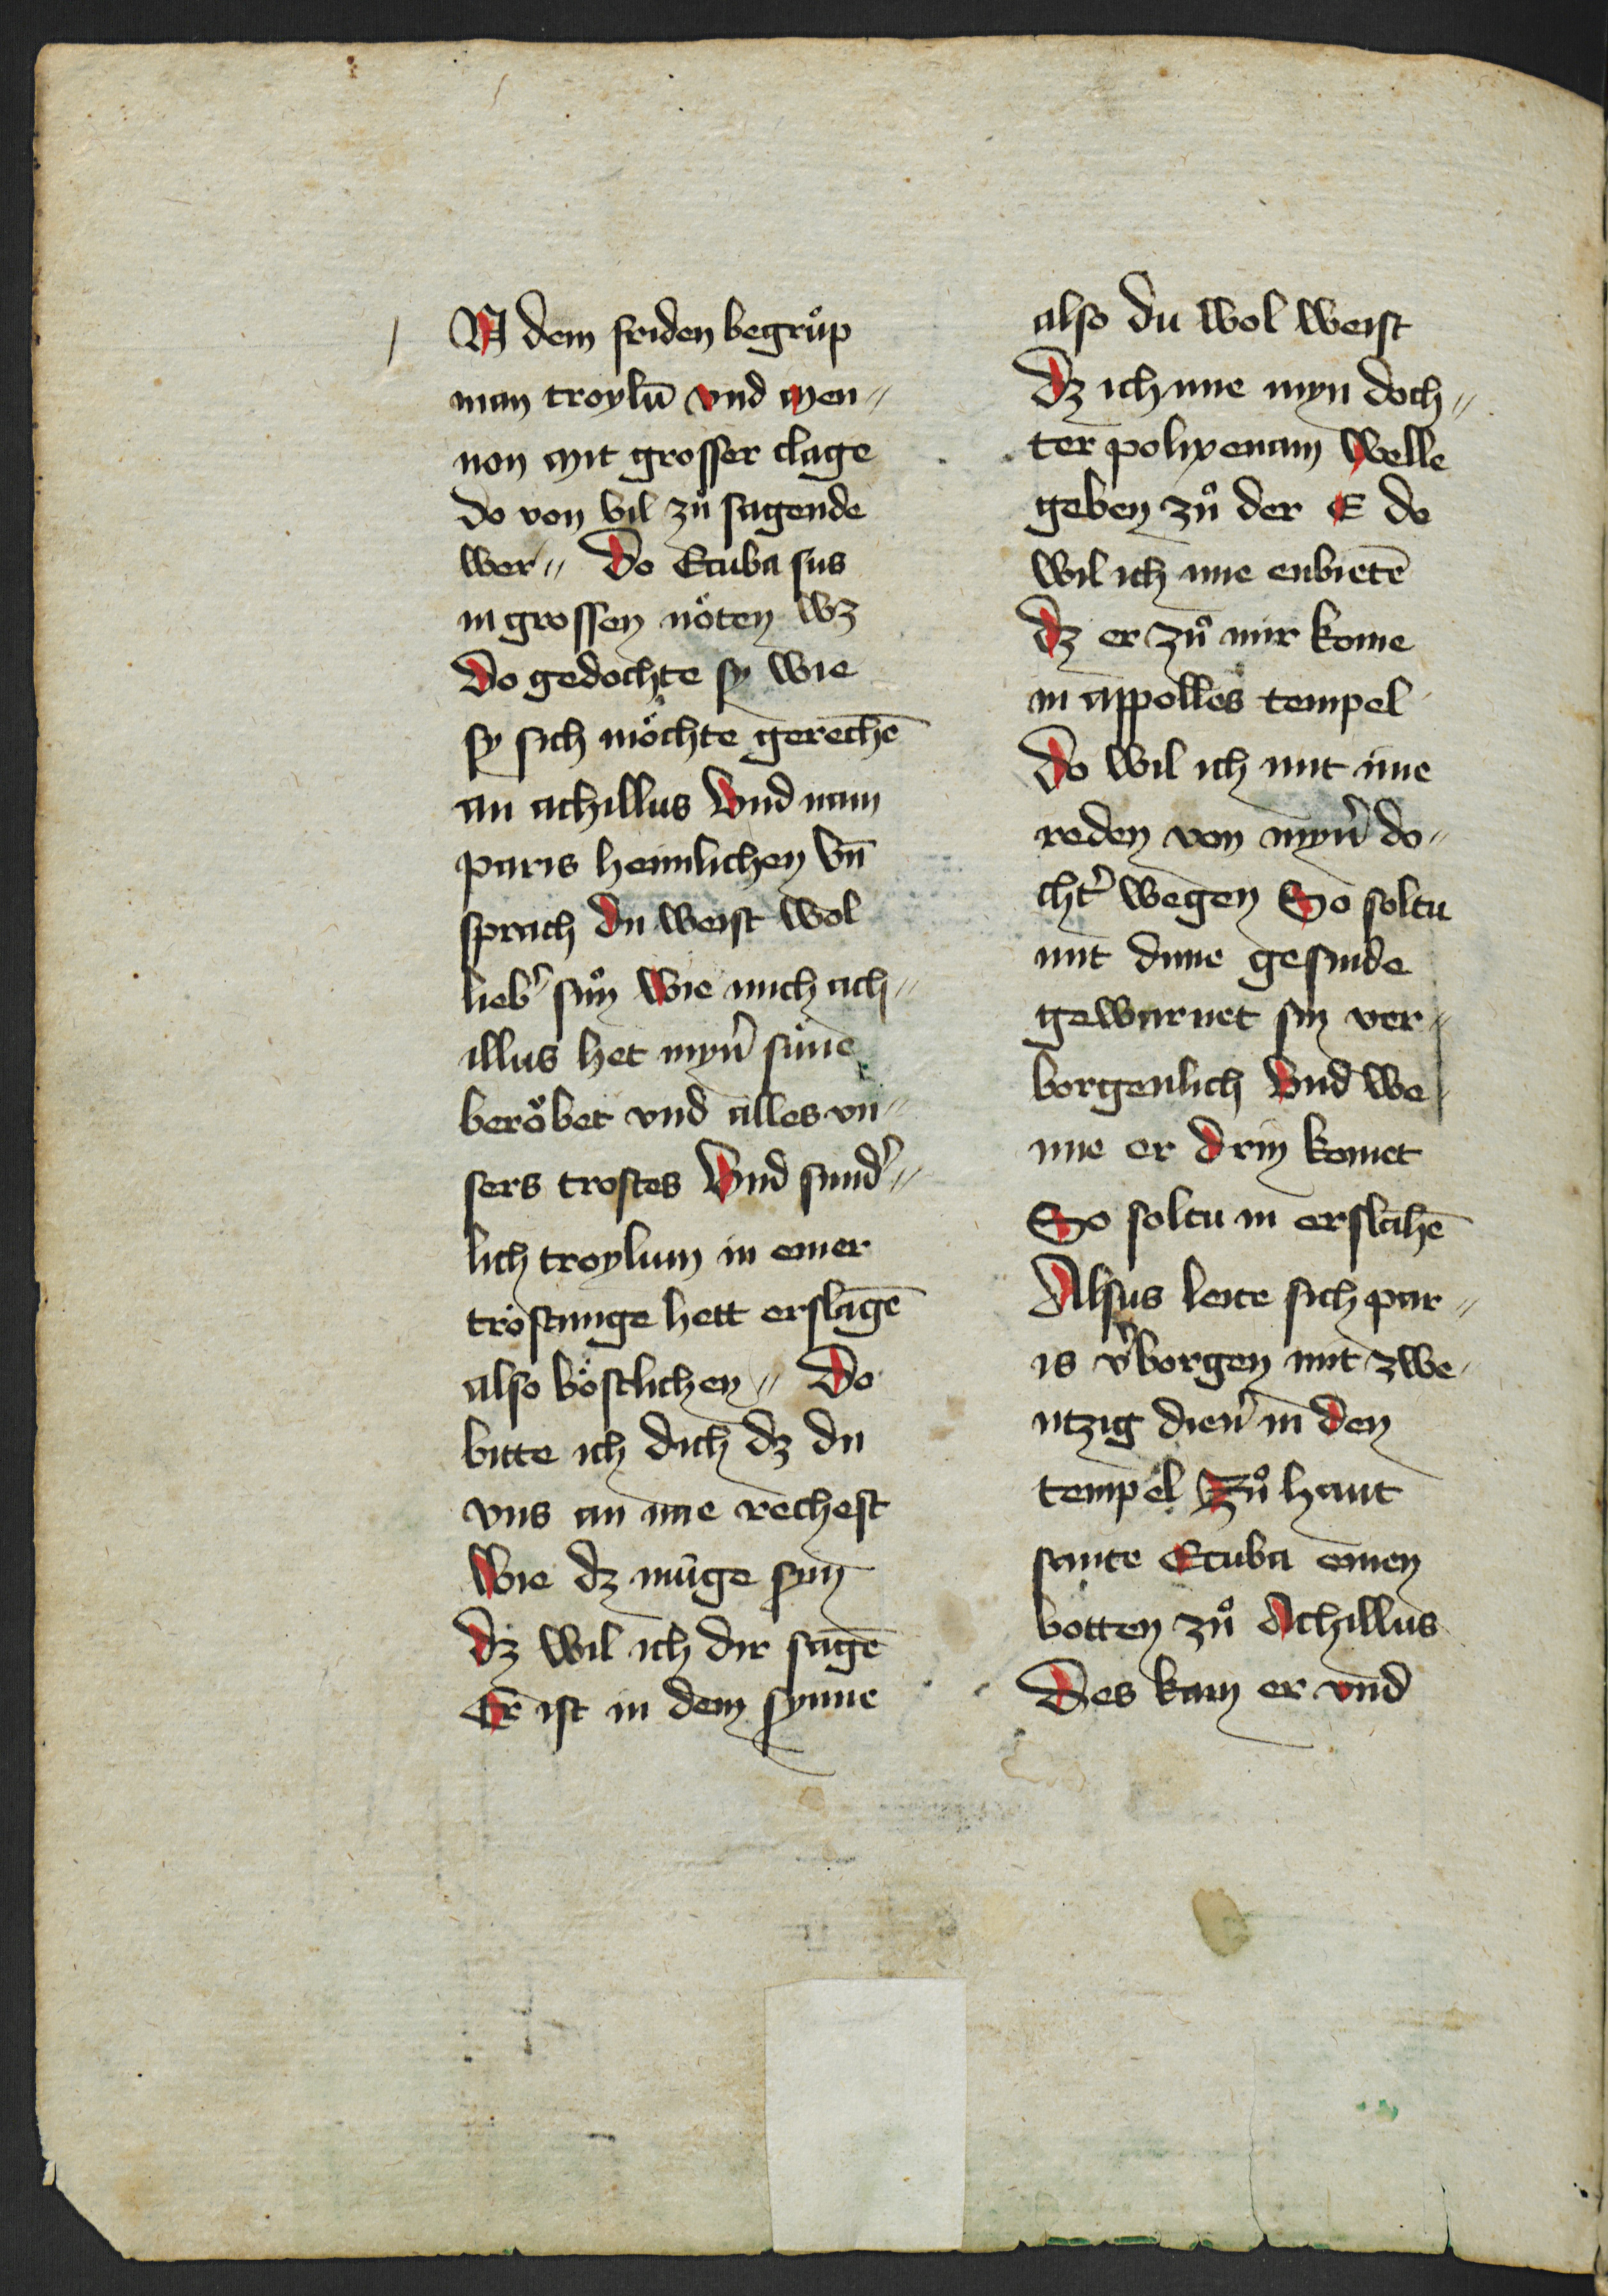 N dem friden begruͦp
man troylū vnd men⸗
non mit grosser clage
do von vil zuͦ sagende
wer⸗ Do Ecuba sus
in grossen noͤten wz
Do gedochte sy wie
sy sich moͤchte gerechē
an achillus Vnd nam
paris heimlichen vn̄
sprach du weist wol
lieb᾽ suͦn wie mich ach⸗
illus het myn᾽ suͤne
beroͤbet vnd alles vn⸗
sers trostes Vnd sund᾽⸗
lich troylum in einer
troͤstunge hett erslagē
also boͤstlichen⸗ Do
bitte ich dich dz du
vns an ime rechest
Wie dz muͤge sym
dz wil ich dir sagē
Er ist in dem synne
also du wol weist
dz ich ime myn doch⸗
ter polixenam welle
geben zuͦ der E do
wil ich ime enbietē
dz er zuͦ mir kome
in appolles tempel
Do wil ich mit ime
reden von myn᾽ do⸗
cht᾽ wegen So soltu
mit dime gesinde
gewarnet sin ver⸗
borgenlich Vnd we⸗
nne er drin komet
So soltu in erslahē
Alsus leite sich par⸗
is v᾽borgen mit zwe⸗
ntzig dien᾽ in den
tempel Zuͦ hant
sante Ecuba einen
botten zuͦ Achillus
Des kam er vnd